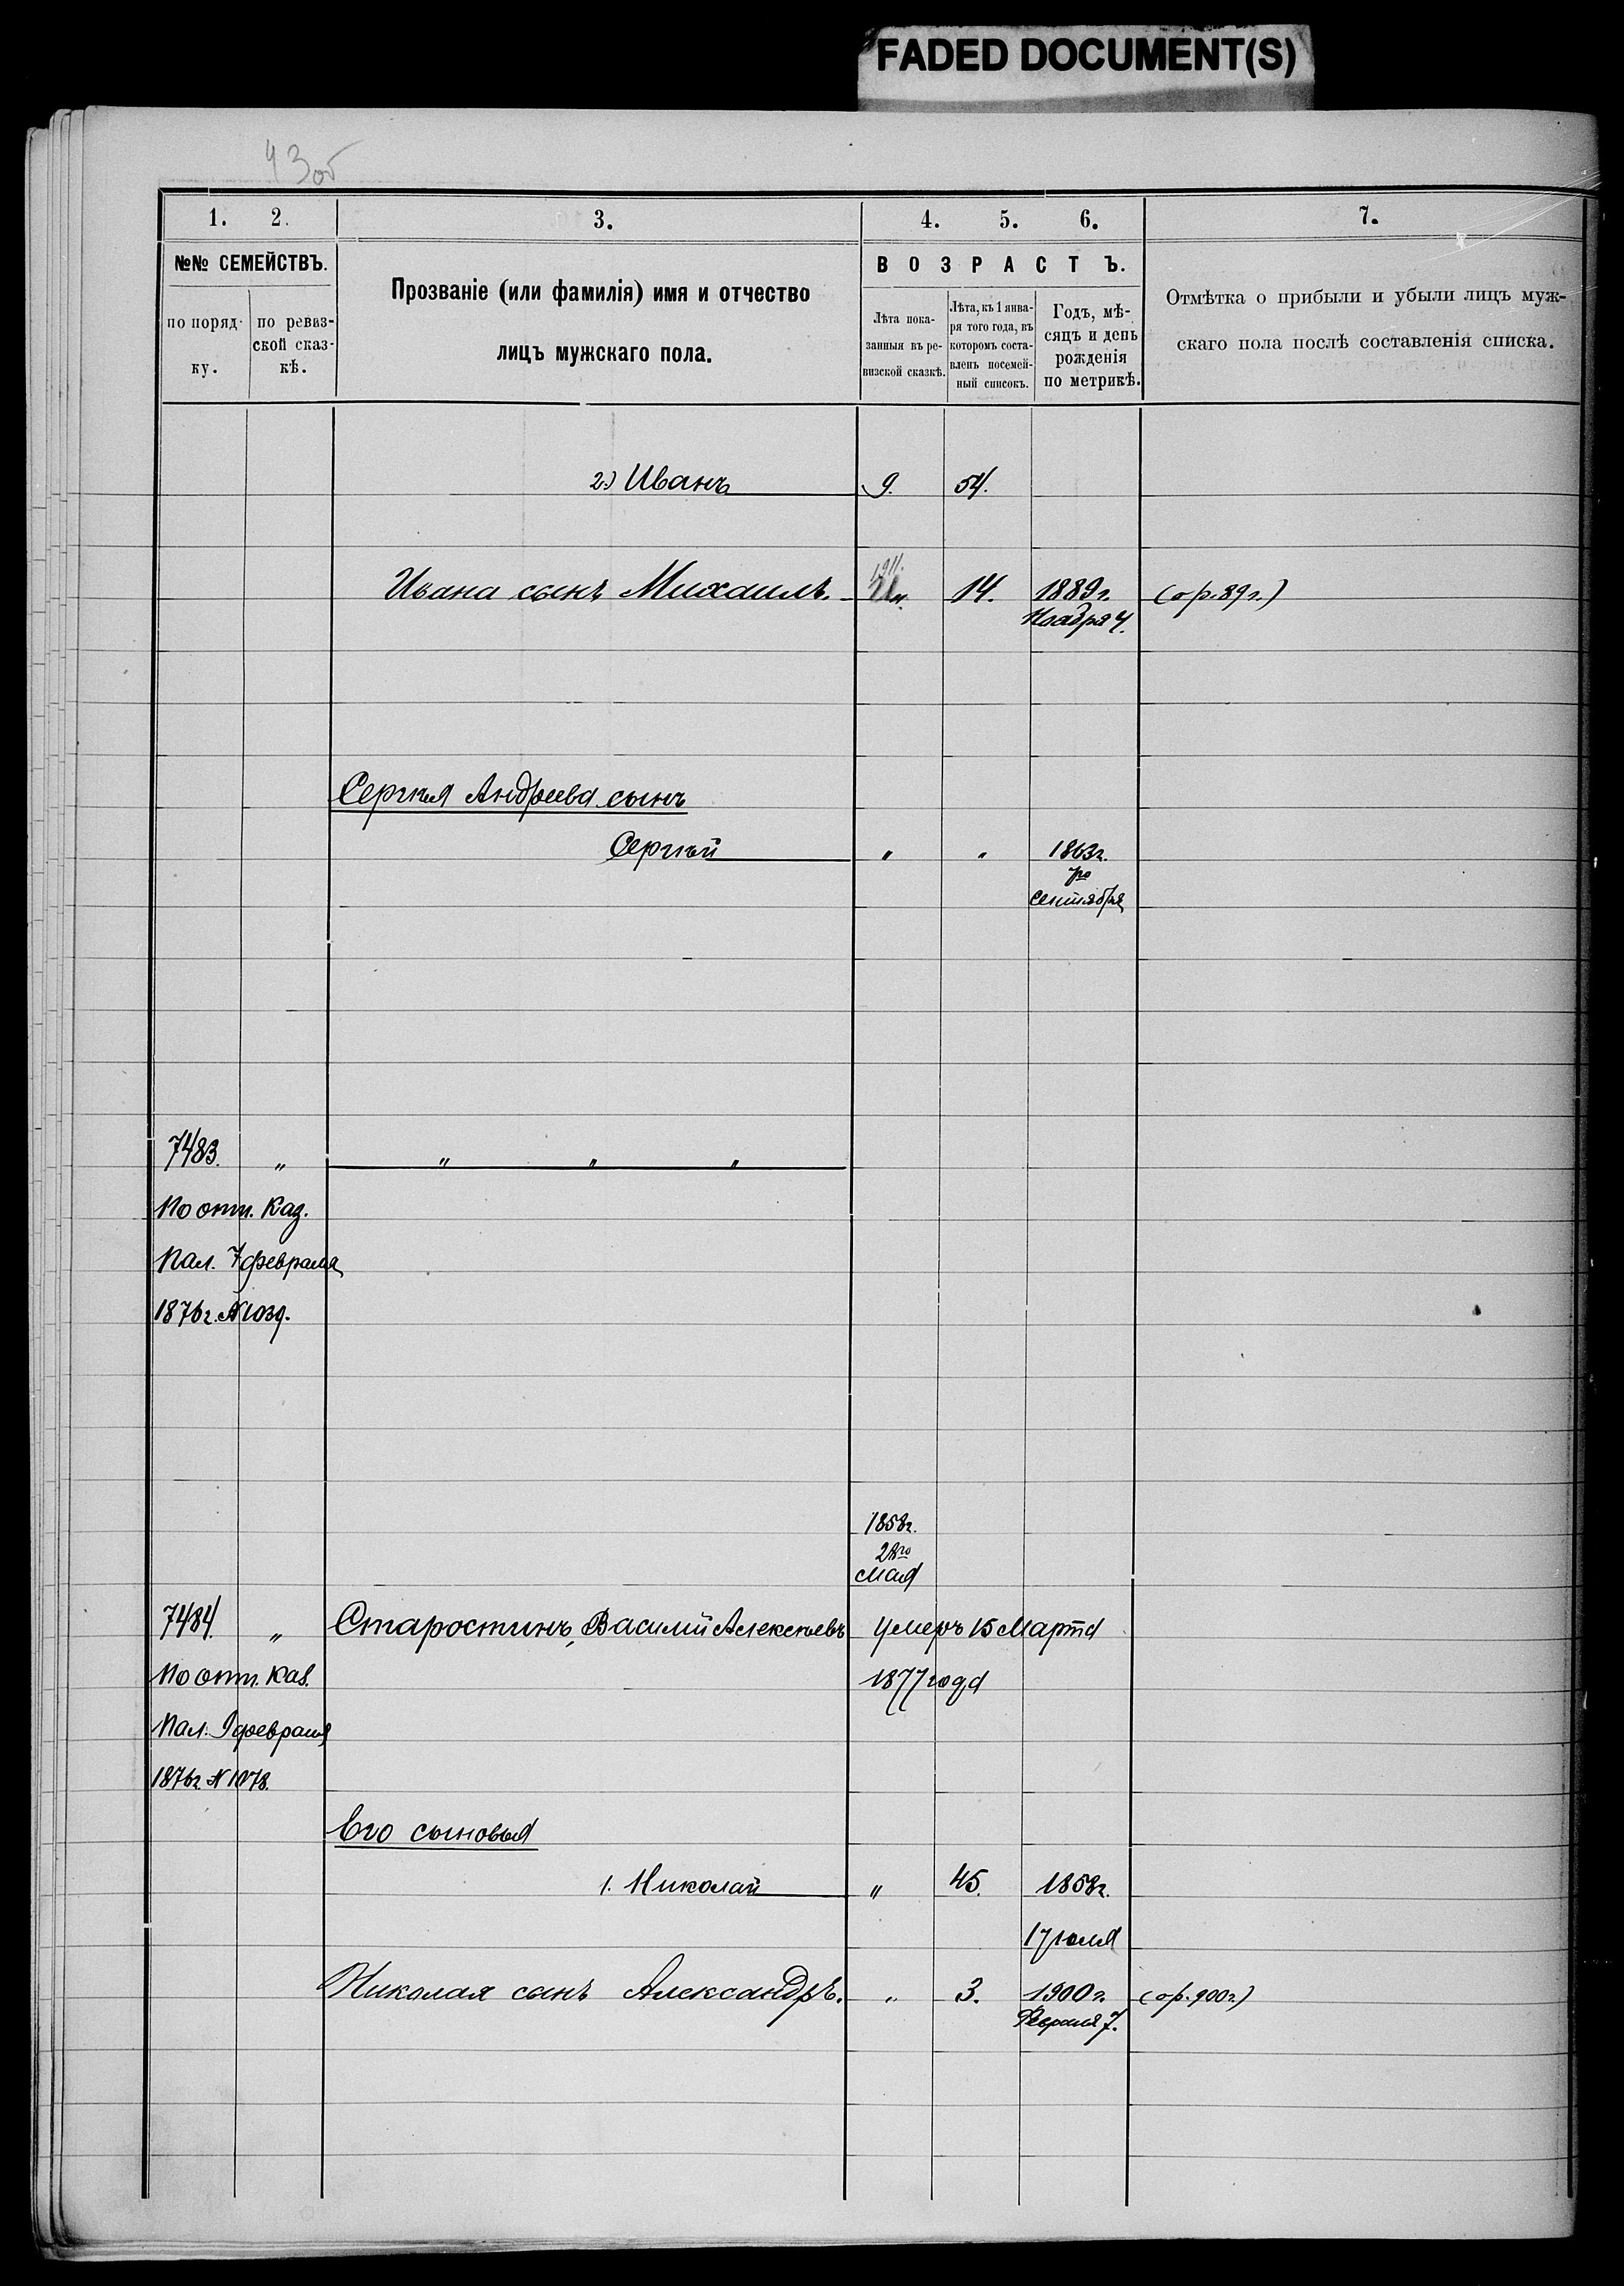 FADED DOCUMENT(S)
43об
1. 2. 3. 4. 5. 6. 7.
№№ СЕМЕЙСТВЪ.
по поряд-
ку.
по ревиз-
ской сказ-
кѣ.
Прозваніе (или фамилія) имя и отчество
лицъ мужскаго пола.
ВОЗРАСТЪ.
Лѣта пока-
занныя въ ре-
визской сказкѣ.
Лѣта, къ 1 янва-
ря того года, въ
которомъ соста-
вленъ посемей-
ный списокъ.
Годъ, мѣ-
сяцъ и день
рожденія
по метрикѣ.
Отмѣтка о прибыли и убыли лицъ муж-
скаго пола послѣ составленія списка.
2.) Иванъ 9. 54.
1911.
Ивана сынъ Михаилъ. „ 14. 1889г. (ор. 89г.)
Ноября 4.
Сергѣя Андреева сынъ
Сергѣй „ „ 1863г.
сентября
7483. „ „ „ „
По отп. Каз.
Пал. 7 февраля
1876г. №1039.
1858г.
28го
мая
7484. „ Старостинъ, Василій Алексѣевъ умеръ 15 Марта
По отп. Каз. 1877 года
Пал. 9 февраля
1876г. №1078.
Его сыновья
1. Николай „ 45. 1858г.
17 юля
Николая сынъ Александръ. „ 3. 1900г. (ор. 900г.)
Февраля 7.